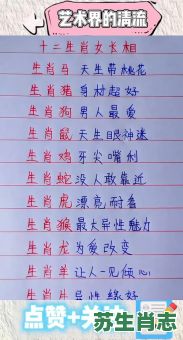 艺术界的清流
十二生肖女长相
生肖马 天生带桃花
生肖猪 身材超好
生肖狗 男人最爱
生肖鼠 天生眼神迷
生肖鸡 牙尖嘴利
生肖蛇 没人敢靠近
生肖虎 漂亮耐看
生肖猴 最大异性魅力
生肖龙 为爱改变
生肖羊 让人一见倾心
生肖牛 异性缘好
点赞+关
苏生肖志